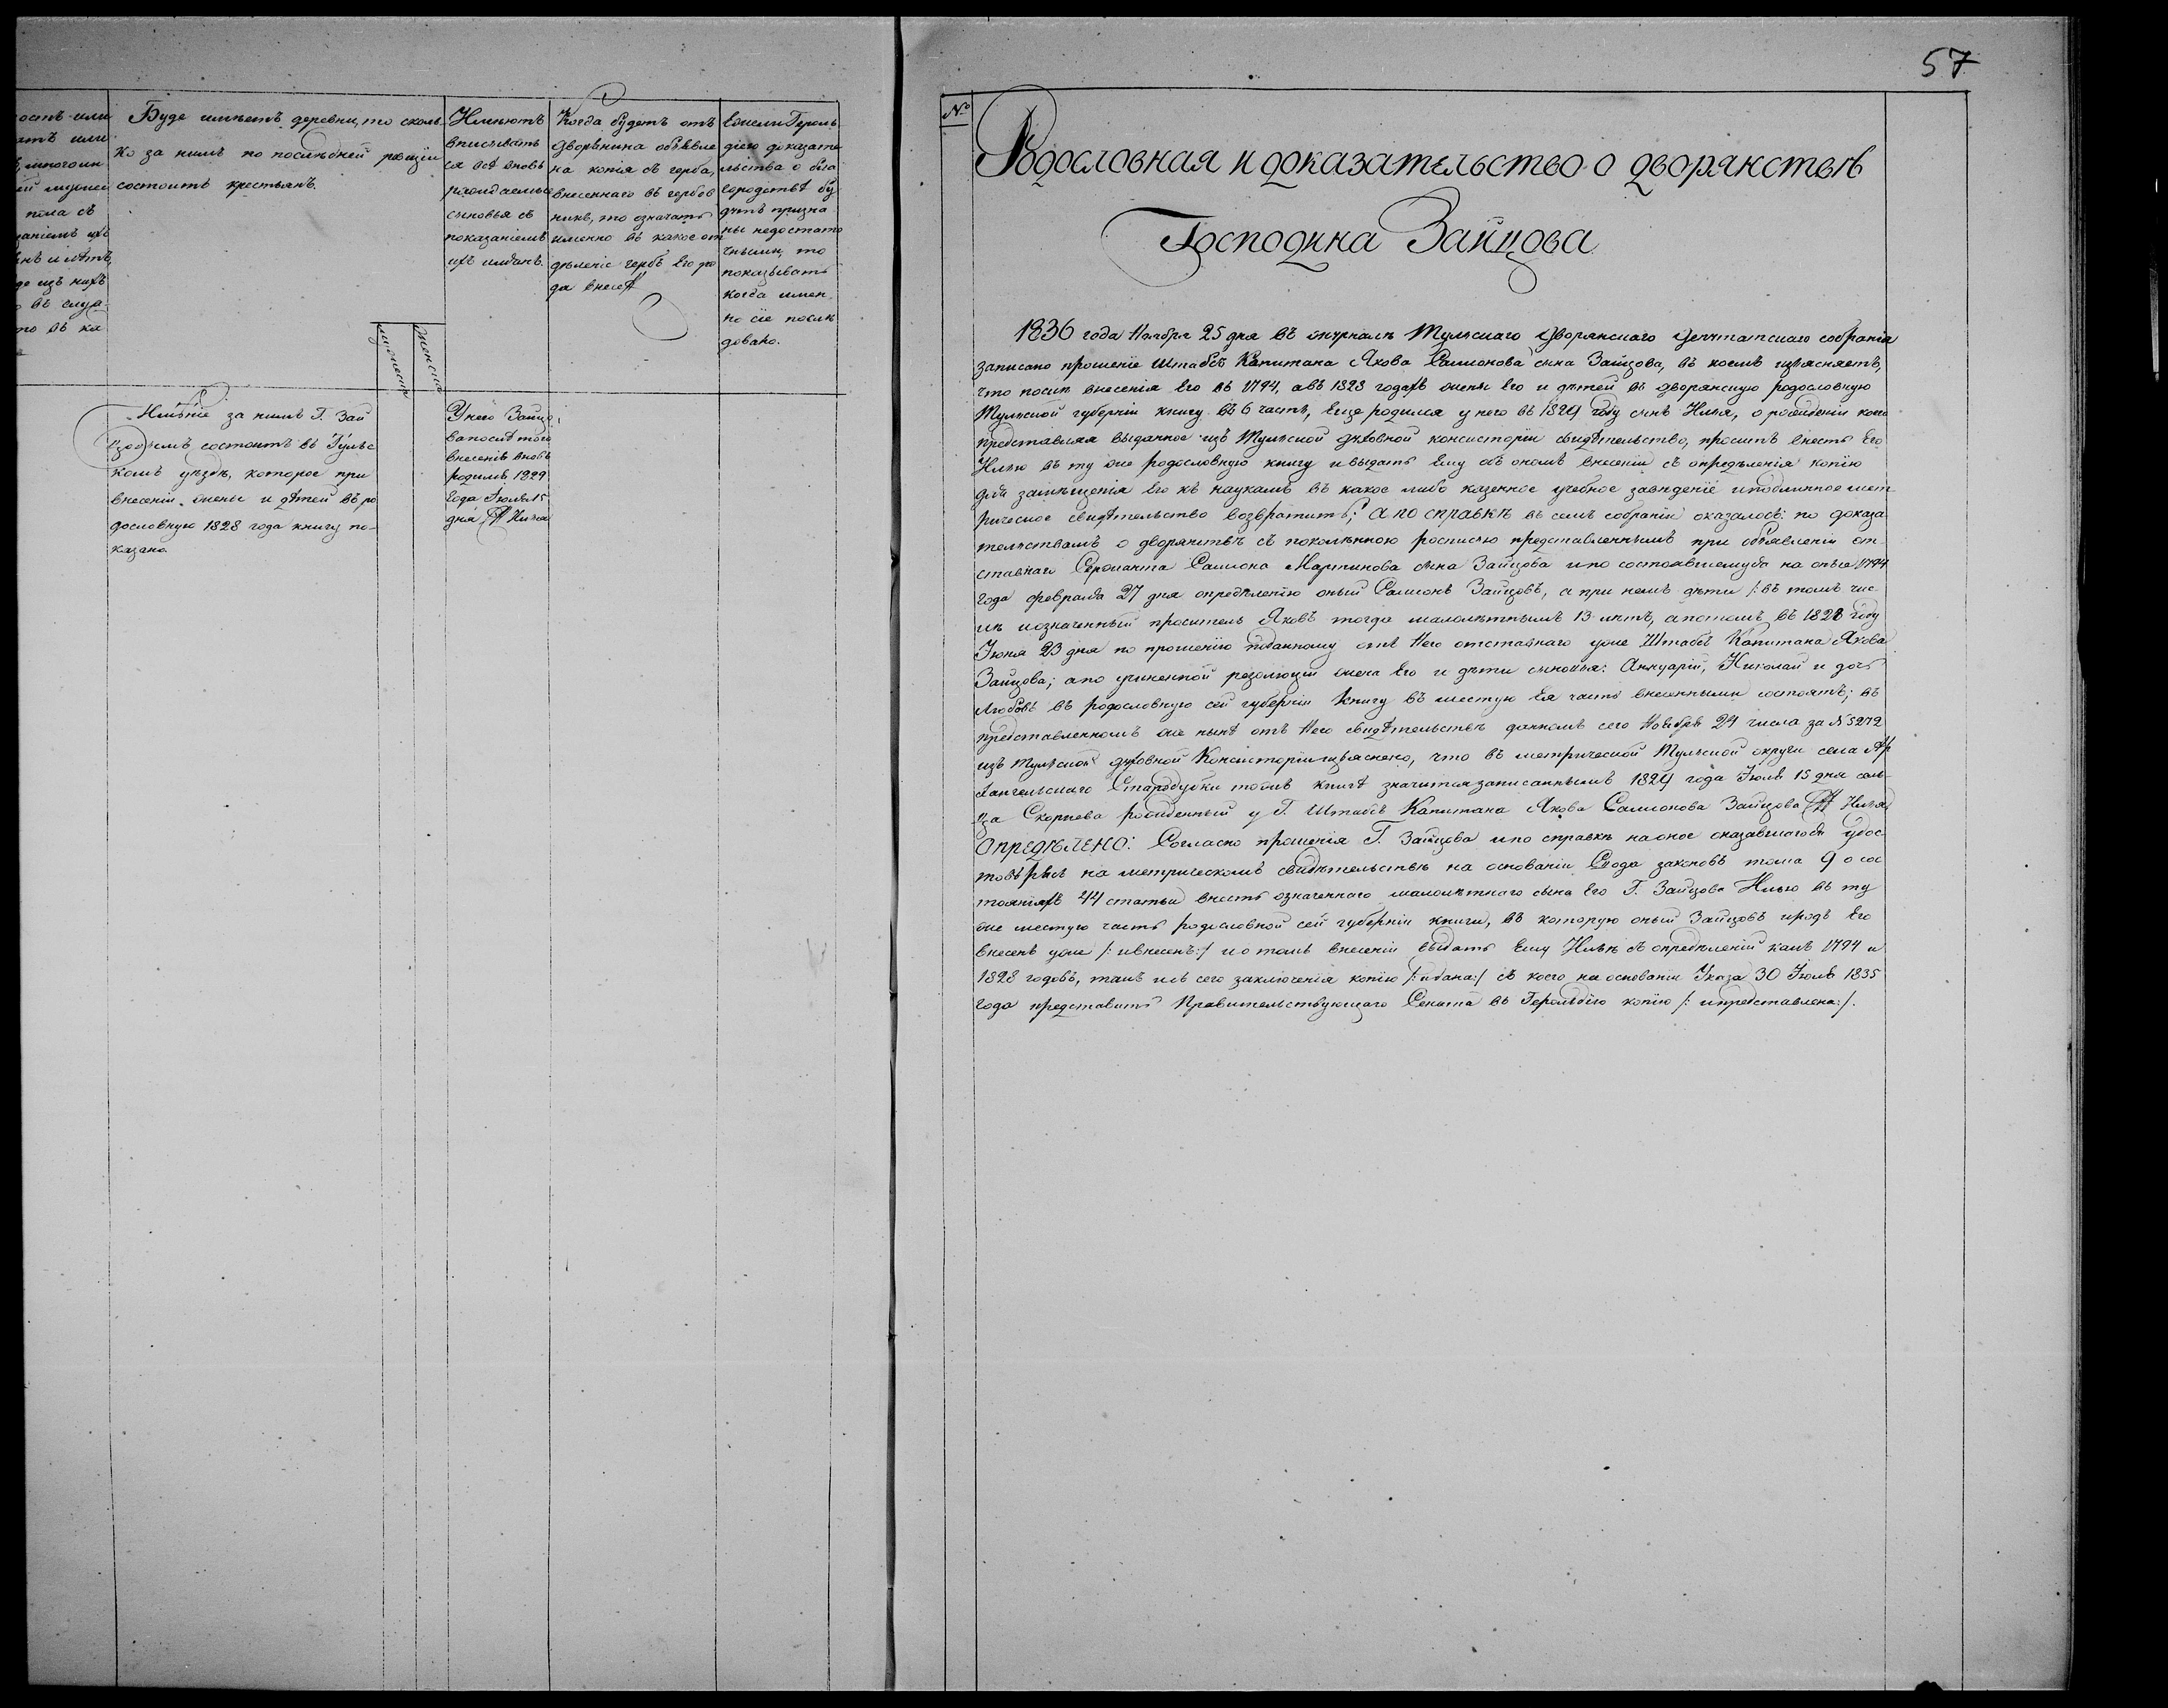 57
ость или
ать или
многоим
ей мужес
пола съ
заніемъ ихъ
нъ и лѣтъ,
де изъ нихъ
въ служ
то въ ка
Буде имѣетъ деревни, то сколь
ко за нимъ по послѣдней ревизіи
состоитъ крестьянъ.
мужеска
женска
Имѣютъ
вписывать
ся всѣ вновь
раждаемые
сыновья съ
показаніемъ
ихъ имянъ.
Когда будетъ отъ
дворянина объявле
на копія съ герба,
внесеннаго въ гербов
никъ, то означать
именно въ какое от
дѣленіе гербъ его ро
да внесенъ
Ежели Героль
діею доказате
льства о бла
городствѣ бу
дутъ призна
ны недостато
чными, то
показывать
когда имен
но сіе послѣ
довало.
Имѣніе за нимъ Г. Зай
цовымъ состоитъ въ Тульс
комъ уѣздѣ, которое при
внесеніи жены и дѣтей въ ро
дословную 1828 года книгу по-
казано.
У него Зайцо
ва послѣ того
внесенія вновь
родился 1829
года Іюля 15
дня Илья
№
Родословная и доказательство о дворянствѣ
Господина Зайцова
1836 года Ноября 25 дня въ журналѣ Тульскаго Дворянскаго Депутатскаго собранія
записано прошеніе Штабсъ Капитана Якова Самсонова сына Зайцова, въ коемъ изъясняетъ,
что послѣ внесенія Его въ 1794, а въ 1828 годахъ жены Его и дѣтей въ дворянскую родословную
Тульской губерніи книгу въ 6 часть, еще родился у него въ 1829 году сынъ Илья, о рожденіи коего
представляя выданное изъ Тульской духовной консисторіи свидѣтельство, проситъ внесть Его
Илью въ ту же родословную книгу и выдать Ему объ ономъ внесеніи съ опредѣленія копію
для замѣщенія Его къ наукамъ въ какое либо казенное учебное заведеніе и подлинное мет
рическое свидѣтельство возвратить; а по справкѣ въ семъ собраніи оказалось: по доказа
тельствамъ о дворянствѣ съ поколѣнною росписью представленнымъ при объявленіи от-
ставнаго Сержанта Самсона Мартинова сына Зайцова и по состоявшемуся на оныя 1794
года февраля 27 дня опредѣленію оный Самсонъ Зайцовъ, а при немъ дѣти /: въ томъ чис
лѣ и означенный проситель Яковъ тогда малолѣтнымъ 13 лѣтъ, а потомъ въ 1828 году
Іюня 23 дня по прошенію поданному отъ Него отставнаго уже Штабсъ Капитана Якова
Зайцова; а по учиненной резолюціи жена Его и дѣти сыновья: Аннуарій, Николай и дочь
Любовь въ родословную сей губерніи книгу въ шестую Ея часть внесенными состоятъ; въ
представленномъ же нынѣ отъ Него свидѣтельствѣ данномъ сего Ноября 24 числа за № 5272
изъ Тульской духовной Консисторіи изъяснено, что въ метрической Тульской округи села Ар
хангельскаго Стародубки тожъ книгѣ значится записаннымъ 1829 года Іюля 15 дня сель-
ца Скорнева рожденный у Г. Штабсъ Капитана Якова Самсонова Зайцова Илья
ОПРЕДѢЛЕНО: Согласно прошенія Г. Зайцова и по справкѣ на оное оказавшагося удос
товѣрясь на метрическомъ свидѣтельствѣ на основаніи Свода законовъ тома 9 о сос
тояніяхъ 44 статьи внесть означеннаго малолѣтнаго сына Его Г. Зайцова Илью въ ту
же шестую часть родословной сей губерніи книги, въ которую оный Зайцовъ и родъ Его
внесенъ уже /: и внесенъ:/ и о томъ внесеніи выдать Ему Ильѣ съ опредѣленій какъ 1794 и
1828 годовъ, такъ и съ сего заключенія копію /: и дана:/ съ коего на основаніи Указа 30 Іюля 1835
года представить Правительствующаго Сената въ Герольдію копію /: и представлена:/.